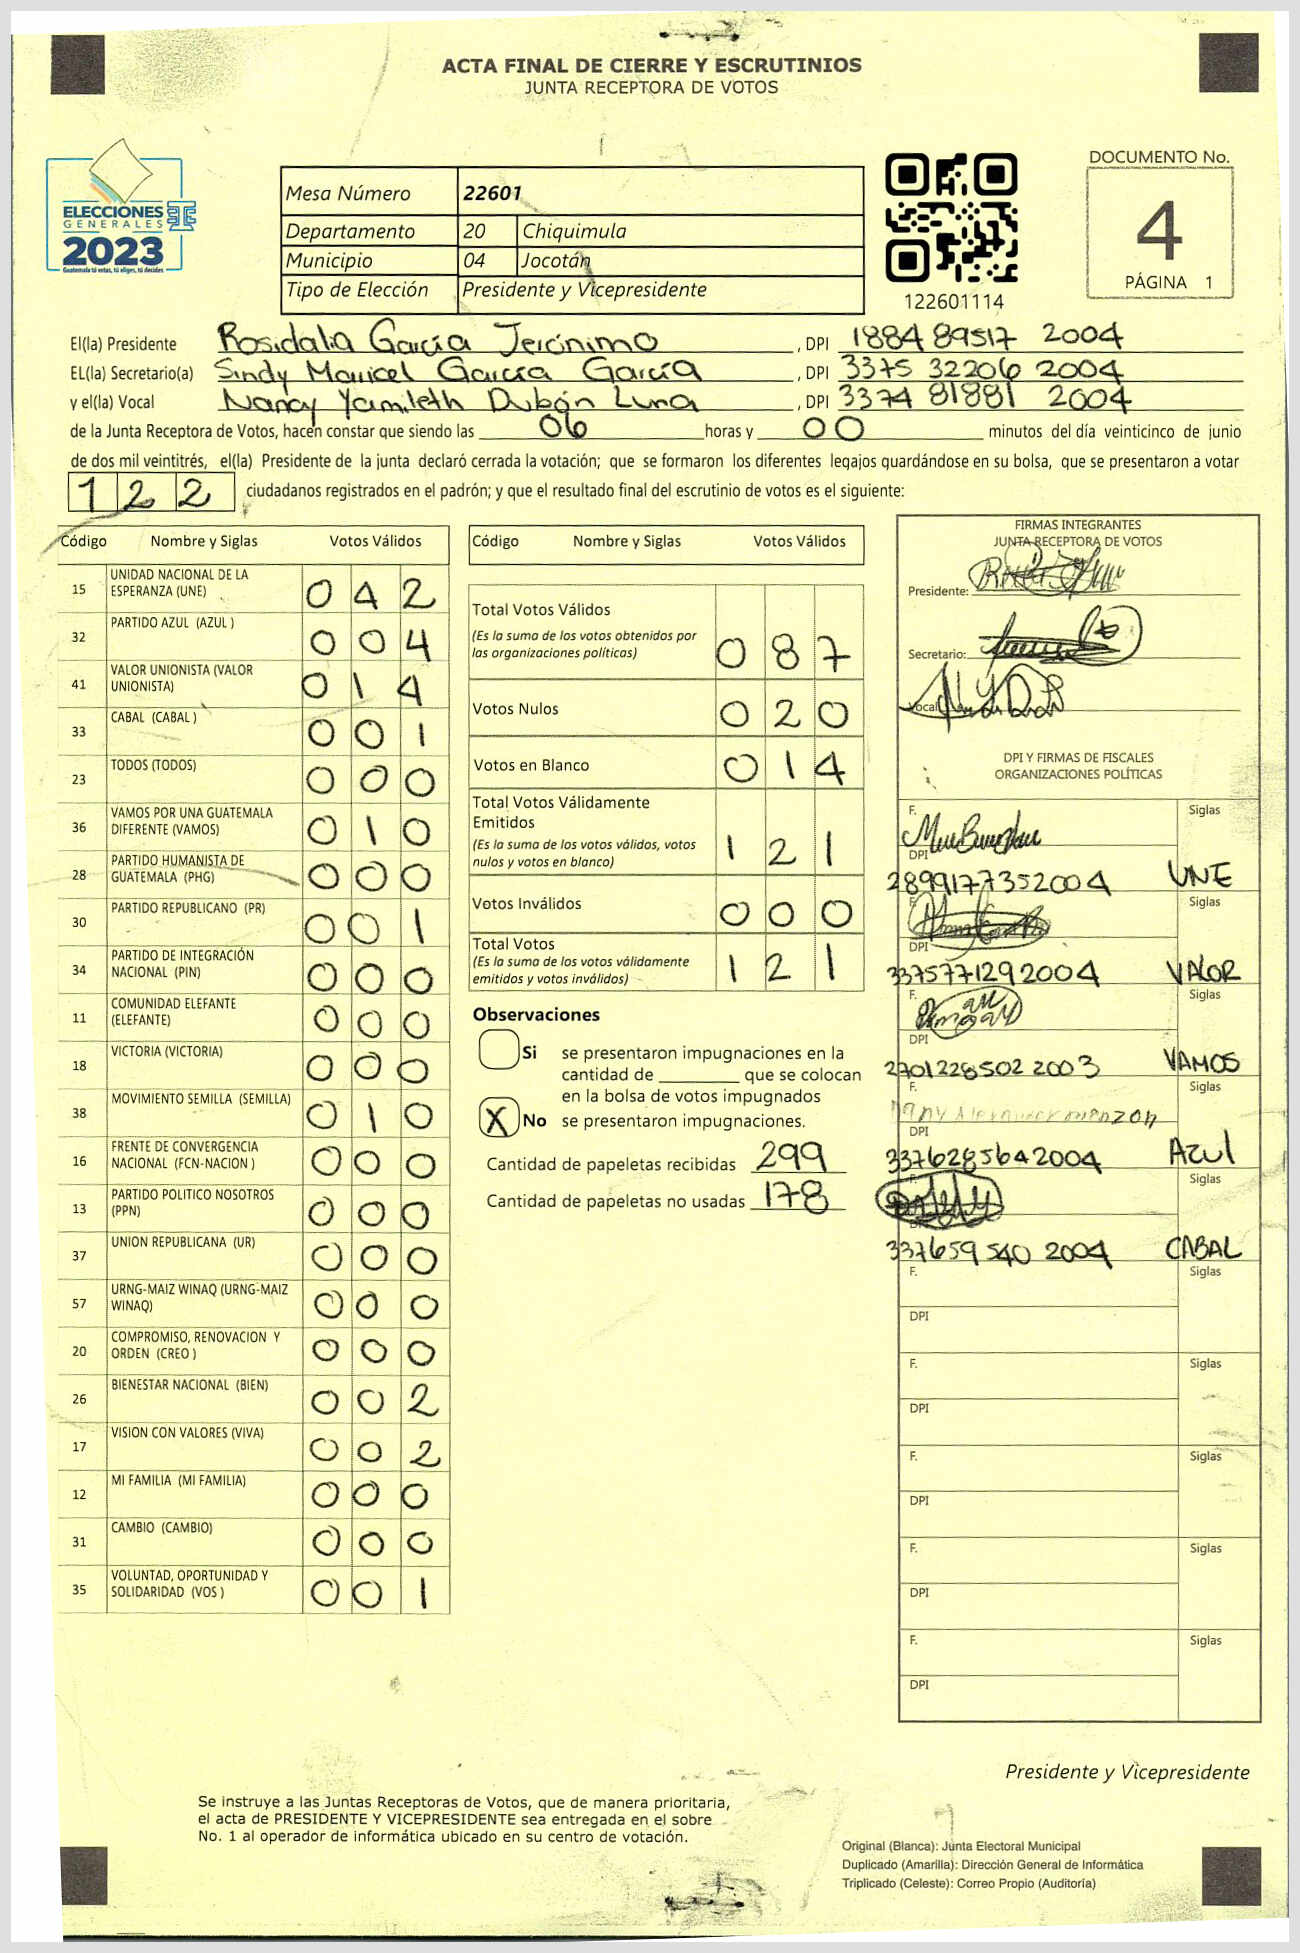 ACTA FINAL DE CIERRE Y ESCRUTINIOS
JUNTA RECEPTORA DE VOTOS
ELECCIONES
GENERALES
2023
Guatemala tú votas, tú eliges, tú decides
Mesa Número 22601
Departamento 20 Chiquimula
Municipio 04 Jocotán
Tipo de Elección Presidente y Vicepresidente
122601114
DOCUMENTO No.
4
PÁGINA 1
El(la) Presidente Rosidalia García Jerónimo , DPI 1884 89517 2004
EL(la) Secretario(a) Sindy Maricel García García , DPI 3375 32206 2004
y el(la) Vocal Nancy Yamileth Dubón Luna , DPI 3374 81881 2004
de la Junta Receptora de Votos, hacen constar que siendo las 06 horas y 00 minutos del día veinticinco de junio
de dos mil veintitrés, el(la) Presidente de la junta declaró cerrada la votación; que se formaron los diferentes legajos guardándose en su bolsa, que se presentaron a votar
122 ciudadanos registrados en el padrón; y que el resultado final del escrutinio de votos es el siguiente:
Código Nombre y Siglas Votos Válidos
15 UNIDAD NACIONAL DE LA ESPERANZA (UNE) 042
32 PARTIDO AZUL (AZUL ) 004
41 VALOR UNIONISTA (VALOR UNIONISTA) 014
33 CABAL (CABAL ) 001
23 TODOS (TODOS) 000
36 VAMOS POR UNA GUATEMALA DIFERENTE (VAMOS) 010
28 PARTIDO HUMANISTA DE GUATEMALA (PHG) 000
30 PARTIDO REPUBLICANO (PR) 001
34 PARTIDO DE INTEGRACIÓN NACIONAL (PIN) 000
11 COMUNIDAD ELEFANTE (ELEFANTE) 000
18 VICTORIA (VICTORIA) 000
38 MOVIMIENTO SEMILLA (SEMILLA) 010
16 FRENTE DE CONVERGENCIA NACIONAL (FCN-NACION ) 000
13 PARTIDO POLITICO NOSOTROS (PPN) 000
37 UNION REPUBLICANA (UR) 000
57 URNG-MAIZ WINAQ (URNG-MAIZ WINAQ) 000
20 COMPROMISO, RENOVACION Y ORDEN (CREO ) 000
26 BIENESTAR NACIONAL (BIEN) 002
17 VISION CON VALORES (VIVA) 002
12 MI FAMILIA (MI FAMILIA) 000
31 CAMBIO (CAMBIO) 000
35 VOLUNTAD, OPORTUNIDAD Y SOLIDARIDAD (VOS ) 001
Código Nombre y Siglas Votos Válidos
Total Votos Válidos 087
(Es la suma de los votos obtenidos por
las organizaciones políticas)
Votos Nulos 020
Votos en Blanco 014
Total Votos Válidamente
Emitidos 121
(Es la suma de los votos válidos, votos
nulos y votos en blanco)
Votos Inválidos 000
Total Votos 121
(Es la suma de los votos válidamente
emitidos y votos inválidos)
Observaciones
Si se presentaron impugnaciones en la
cantidad de ________ que se colocan
en la bolsa de votos impugnados
X No se presentaron impugnaciones.
Cantidad de papeletas recibidas 299
Cantidad de papeletas no usadas 178
FIRMAS INTEGRANTES
JUNTA RECEPTORA DE VOTOS
Presidente:
Secretario:
Vocal
DPI Y FIRMAS DE FISCALES
ORGANIZACIONES POLÍTICAS
F. Siglas
DPI
2899177352004 UNE
F. Siglas
DPI
3375771292004 VALOR
F. Siglas
DPI
2701228502 2003 VAMOS
F. Siglas
DPI
3376285642004 Azul
F. Siglas
DPI
337659 540 2004 CABAL
F. Siglas
DPI
F. Siglas
DPI
F. Siglas
DPI
F. Siglas
DPI
F. Siglas
DPI
Presidente y Vicepresidente
Se instruye a las Juntas Receptoras de Votos, que de manera prioritaria,
el acta de PRESIDENTE Y VICEPRESIDENTE sea entregada en el sobre
No. 1 al operador de informática ubicado en su centro de votación.
Original (Blanca): Junta Electoral Municipal
Duplicado (Amarilla): Dirección General de Informática
Triplicado (Celeste): Correo Propio (Auditoría)